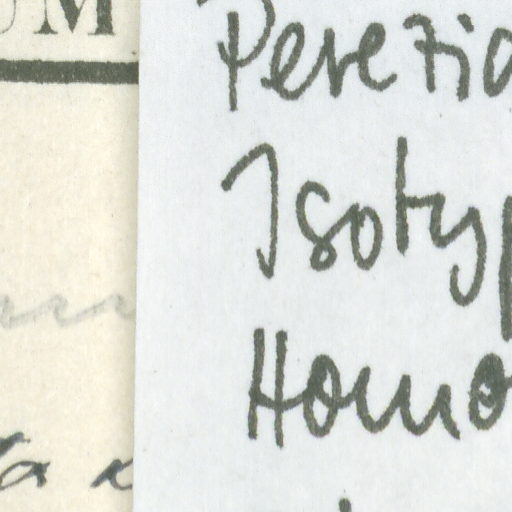 UM
Perezia
Isotyp
Homo